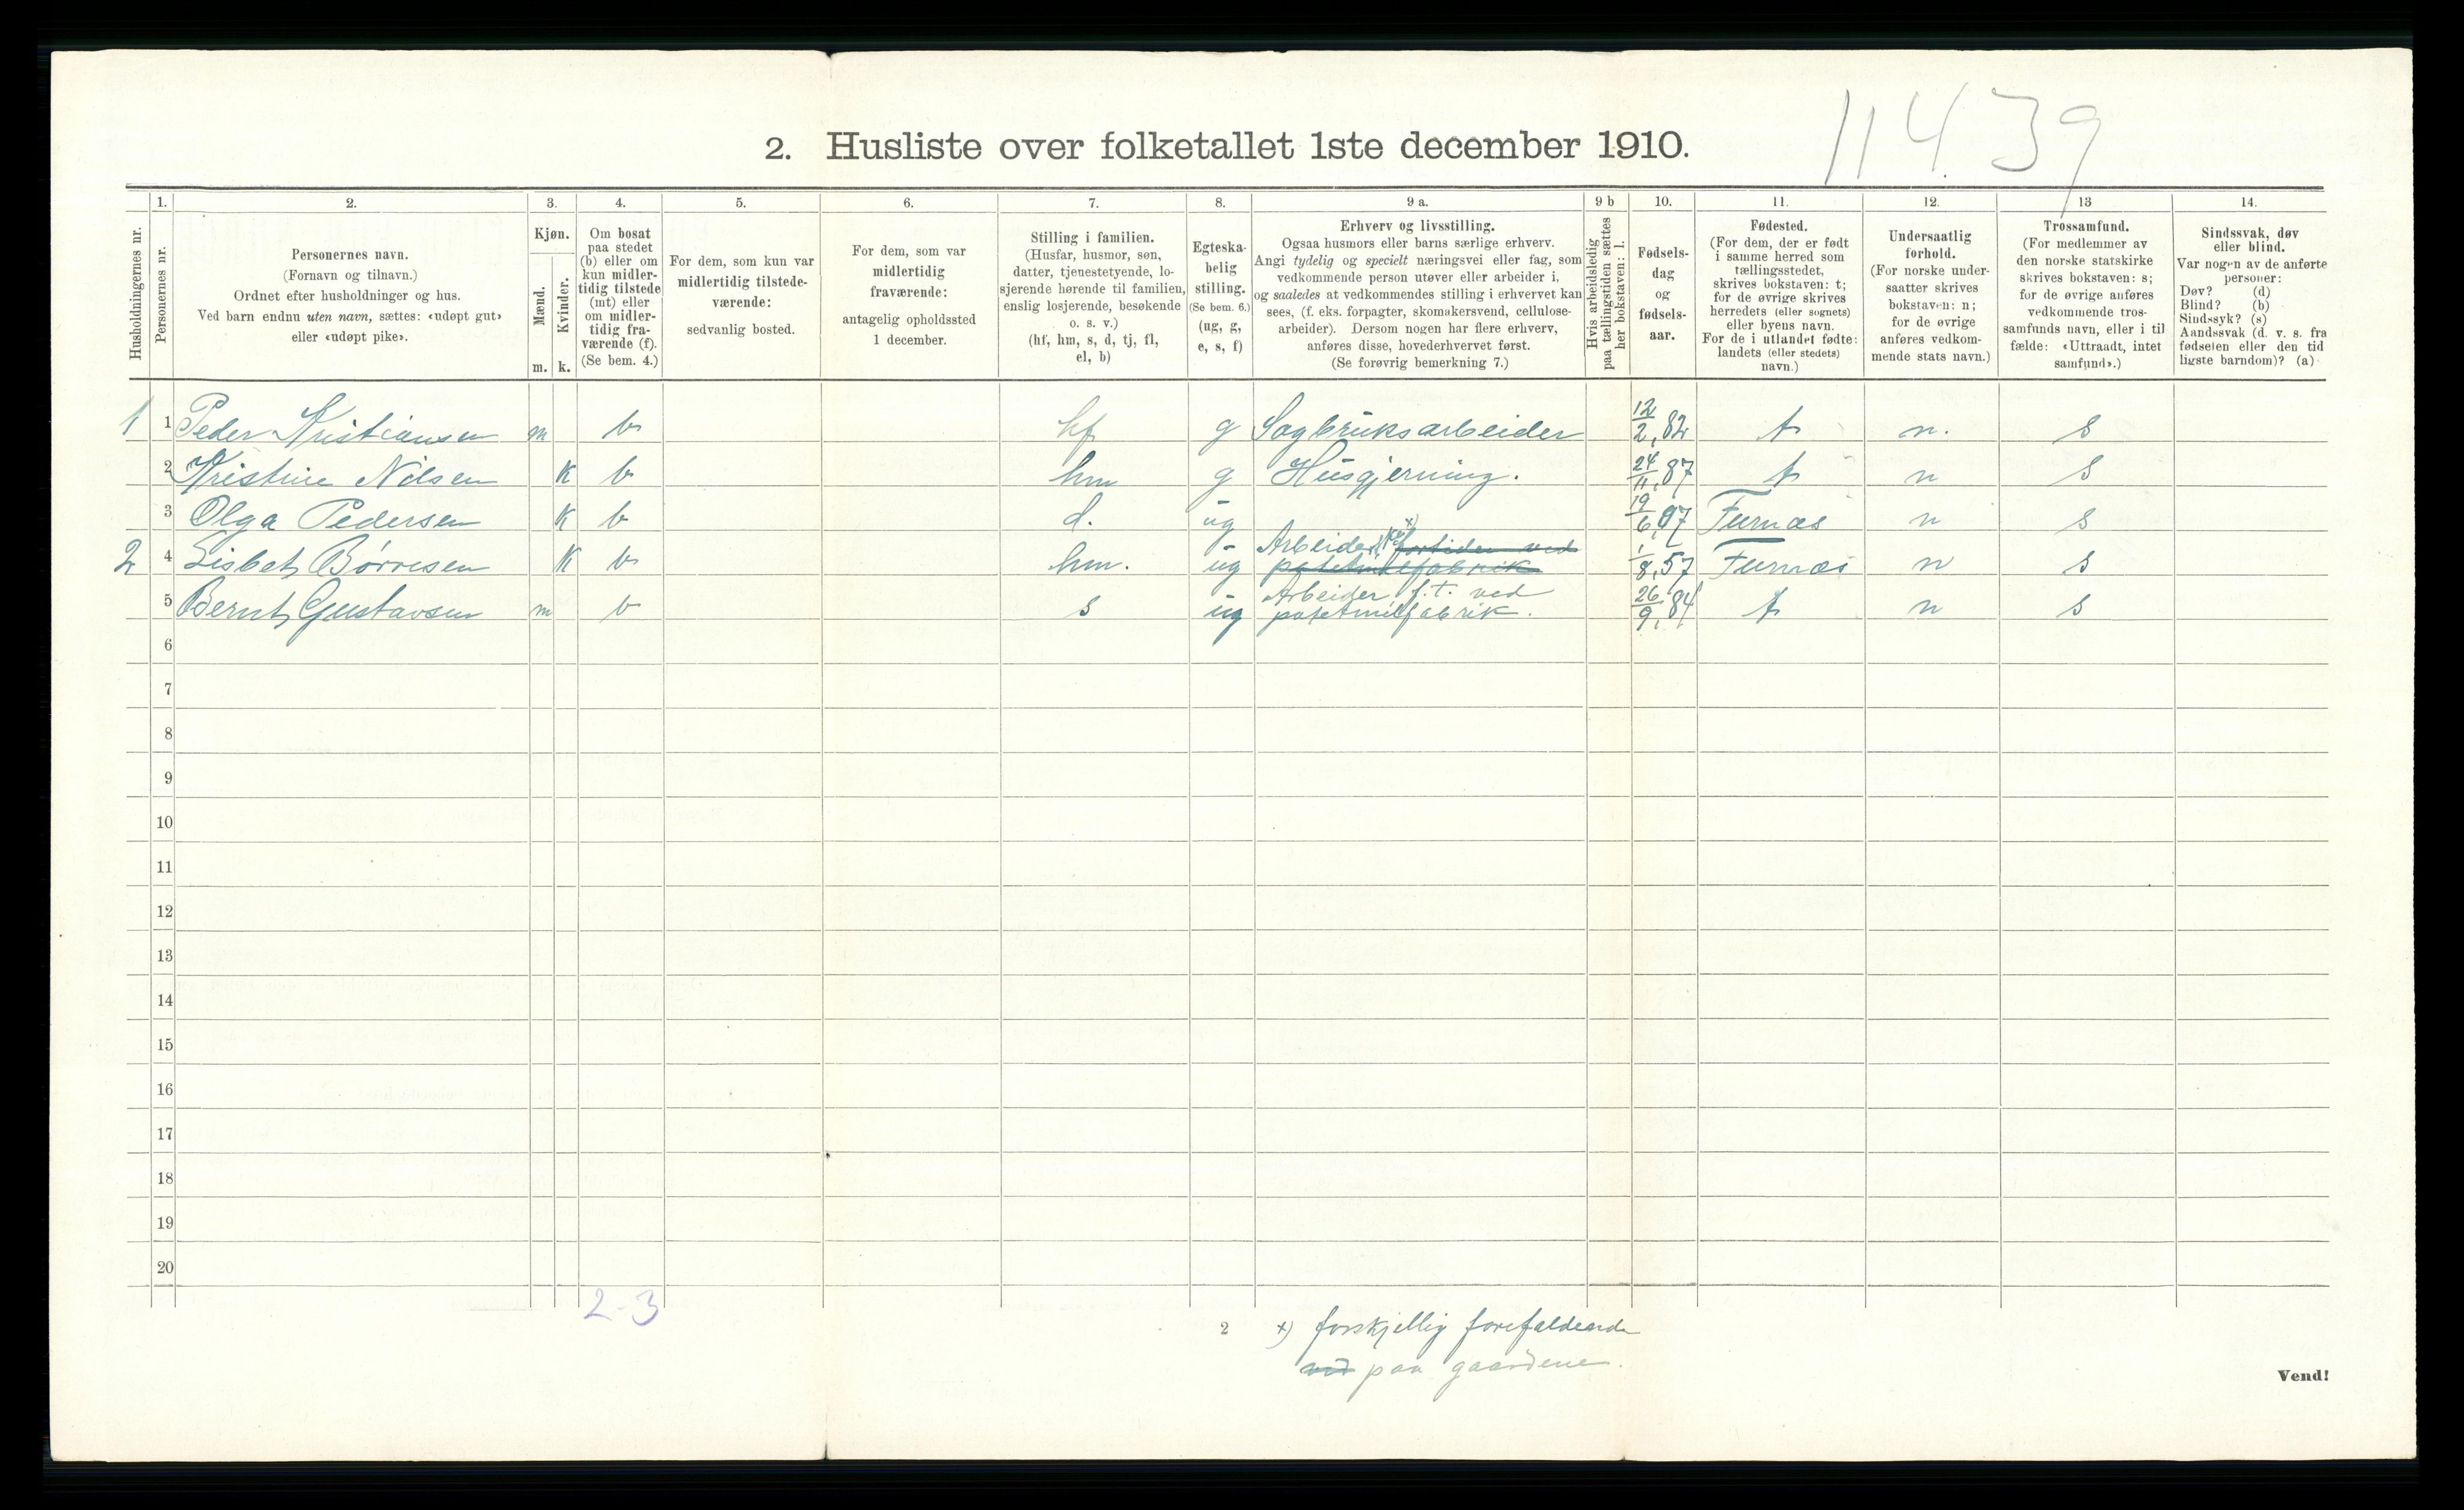 11439
2. Husliste over folketallet 1ste december 1910.
Husholdningernes nr.
1.
Personernes nr.
2.
Personernes navn.
(Fornavn og tilnavn.)
Ordnet efter husholdninger og hus.
Ved barn endnu uten navn, sættes: «udøpt gut»
eller «udøpt pike».
3.
Kjøn.
Mænd.
Kvinder.
m.
k.
4.
Om bosat
paa stedet
(b) eller om
kun midler-
tidig tilstede
(mt) eller
om midler-
tidig fra-
værende (f).
(Se bem. 4.)
5.
For dem, som kun var
midlertidig tilstede-
værende:
sedvanlig bosted.
6.
For dem, som var
midlertidig
fraværende:
antagelig opholdssted
1 december.
7.
Stilling i familien.
(Husfar, husmor, søn,
datter, tjenestetyende, lo-
sjerende hørende til familien,
enslig losjerende, besøkende
o. s. v.)
(hf, hm, s, d, tj, fl,
el, b)
8.
Egteska-
belig
stilling.
(Se bem. 6.)
(ug, g,
e, s, f)
9 a.
Erhverv og livsstilling.
Ogsaa husmors eller barns særlige erhverv.
Angi tydelig og specielt næringsvei eller fag, som
vedkommende person utøver eller arbeider i,
og saaledes at vedkommendes stilling i erhvervet kan
sees, (f. eks. forpagter, skomakersvend, cellulose-
arbeider). Dersom nogen har flere erhverv,
anføres disse, hovederhvervet først.
(Se forøvrig bemerkning 7.)
9 b
Hvis arbeidsledig
paa tællingstiden sættes
her bokstaven: l.
10.
Fødsels-
dag
og
fødsels-
aar.
11.
Fødested.
(For dem, der er født
i samme herred som
tællingsstedet,
skrives bokstaven: t;
for de øvrige skrives
herredets (eller sognets)
eller byens navn.
For de i utlandet fødte:
landets (eller stedets)
navn.)
12.
Undersaatlig
forhold.
(For norske under-
saatter skrives
bokstaven: n;
for de øvrige
anføres vedkom-
mende stats navn.)
13
Trossamfund.
(For medlemmer av
den norske statskirke
skrives bokstaven: s;
for de øvrige anføres
vedkommende tros-
samfunds navn, eller i til
fælde: «Uttraadt, intet
samfund».)
14.
Sindssvak, døv
eller blind.
Var nogen av de anførte
personer:
Døv? (d)
Blind? (b)
Sindssyk? (s)
Aandssvak (d. v. s. fra
fødselen eller den tid
ligste barndom)? (a)
1 1 Peder Kristiansen m b hf g Sagbruksarbeider 12/2, 82 t n. s
2 Kristine Nilsen k b hm g Husgjerning. 24/11, 87 t n s
3 Olga Pedersen k b d. ug 19/6, 07 Furnæs n s
2 4 Lisbet Børresen k b hm. ug Arbeider x) fortiden ved potetmelfabrik 1/8, 57 Furnæs n s
5 Bernt Gustavsen m b s ug Arbeider f.t. ved potetmelfabrik. 26/9, 84 t n s
6
7
8
9
10
11
12
13
14
15
16
17
18
19
20
2-3
2
x) forskjellig forefaldende
ved paa gaardene.
Vend!